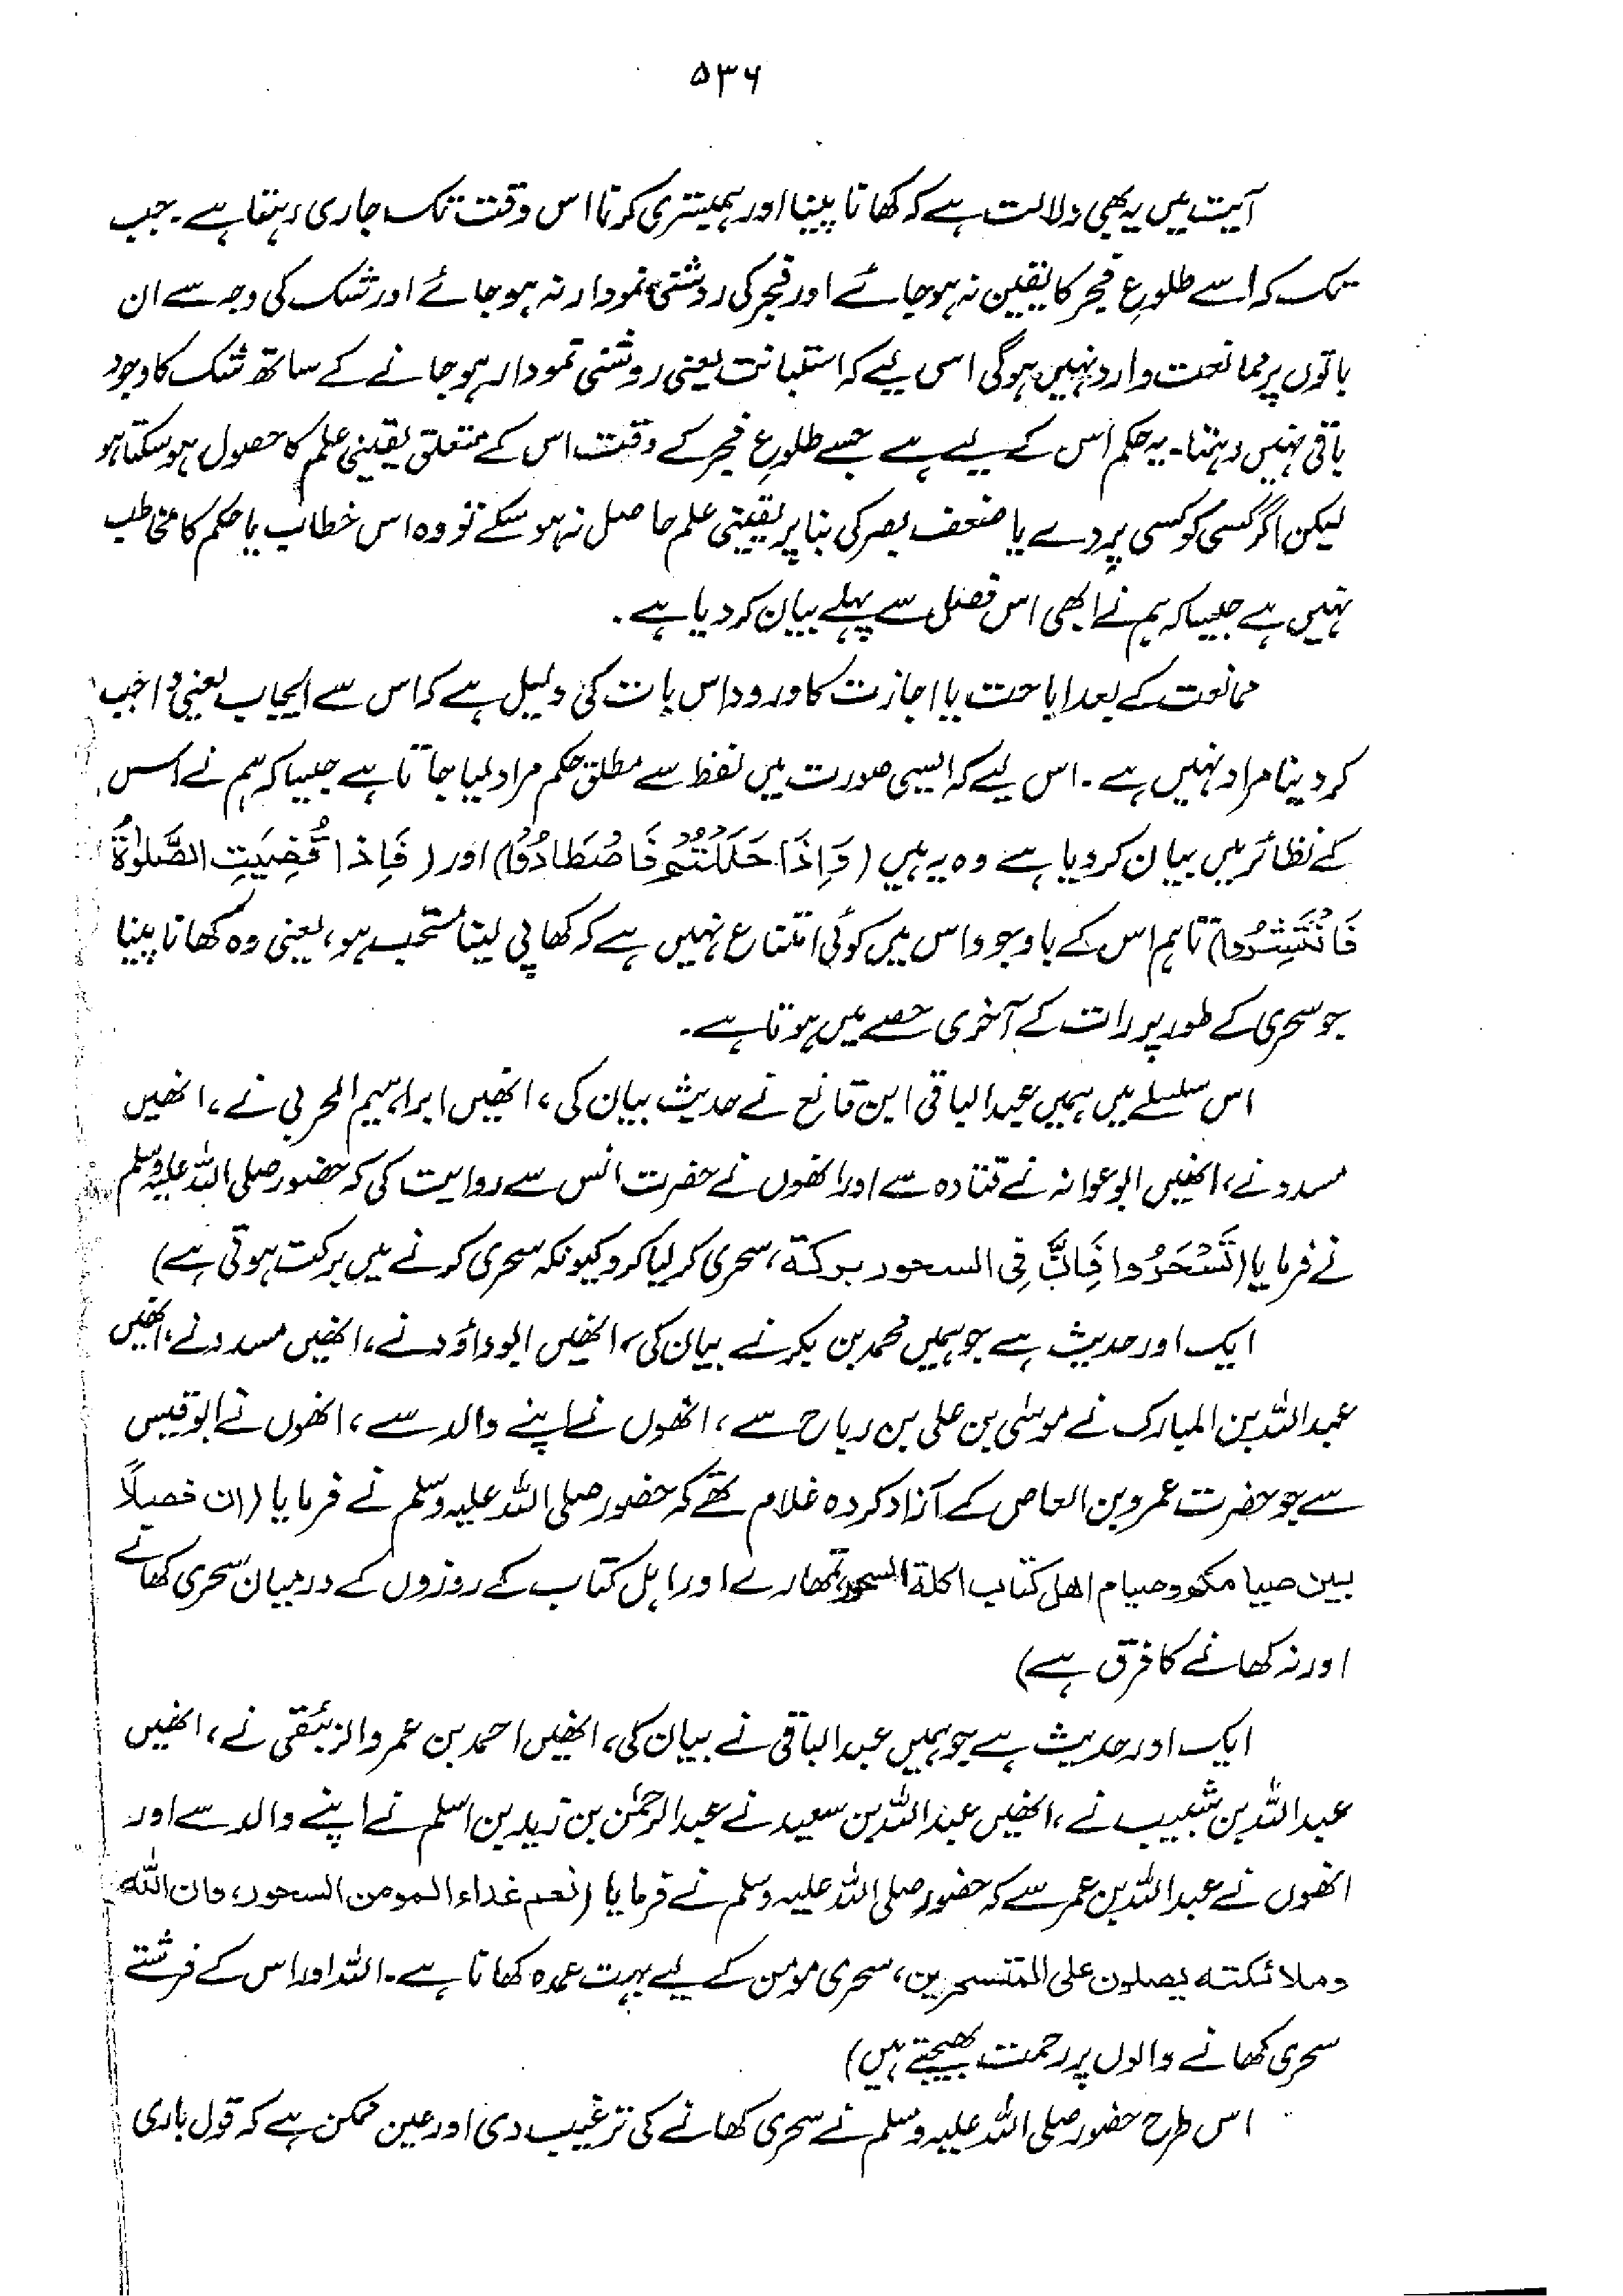 ۵۳۶
آیت میں یہ بھی دلالت ہے کہ کھانا پینا اور ہمبستری کرنا اس وقت تک جاری رہتا ہے۔ جب
تک کہ اسے طلوعِ فجر کا یقین نہ ہو جائے اور فجر کی روشنی نمودار نہ ہو جائے اور شک کی وجہ سے ان
باتوں پر ممانعت وارد نہیں ہوگی اس لیے کہ استبانت یعنی روشنی نمودار ہو جانے کے ساتھ شک کا وجود
باقی نہیں رہتا۔ یہ حکم اُس کے لیے ہے جسے طلوعِ فجر کے وقت اس کے متعلق یقینی علم کا حصول ہو سکتا ہو
لیکن اگر کسی کو کسی پردے یا ضعف بصر کی بنا پر یقینی علم حاصل نہ ہو سکے تو وہ اس خطاب یا حکم کا مخاطب
نہیں ہے جیسا کہ ہم نے ابھی اس فصل سے پہلے بیان کر دیا ہے۔
ممانعت کے بعد اباحت یا اجازت کا ورود اس بات کی دلیل ہے کہ اس سے ایجاب یعنی واجب
کر دینا مراد نہیں ہے۔ اس لیے کہ ایسی صورت میں لفظ سے مطلق حکم مراد لیا جاتا ہے جیسا کہ ہم نے اس
کے نظائر میں بیان کر دیا ہے وہ یہ ہیں (وَإِذَا حَلَلْتُمْ فَاصْطَادُوْا) اور (فَاِذَا قُضِيَتِ الصَّلٰوةُ
فَانْتَشِرُوا) تاہم اس کے باوجود اس میں کوئی امتناع نہیں ہے کہ کھا پی لینا مستحب ہو، یعنی وہ کھانا پینا
جو سحری کے طور پر رات کے آخری حصے میں ہوتا ہے۔
اس سلسلے میں ہمیں عبدالباقی ابن قانع نے حدیث بیان کی، انھیں ابراہیم الحربی نے، انھیں
مسدد نے، انھیں ابوعوانہ نے قتادہ سے اور انھوں نے حضرت انس سے روایت کی کہ حضور صلی اللہ علیہ وسلم
نے فرمایا (تَسَحَّرُوا فَإِنَّ فِی السحور برکة، سحری کر لیا کرو کیونکہ سحری کرنے میں برکت ہوتی ہے)
ایک اور حدیث ہے جو ہمیں محمد بن بکر نے بیان کی، انھیں ابوداؤد نے، انھیں مسدد نے، انھیں
عبداللہ بن المبارک نے موسیٰ بن علی بن رباح سے، انھوں نے اپنے والد سے، انھوں نے ابوقیس
سے جو حضرت عمرو بن العاص کے آزاد کردہ غلام تھے کہ حضور صلی اللہ علیہ وسلم نے فرمایا (ان فصلاً
بین صیامکم وصیام اهل کتاب اکلة السحور تمھارے اور اہل کتاب کے روزوں کے درمیان سحری کھانے
اور نہ کھانے کا فرق ہے)
ایک اور حدیث ہے جو ہمیں عبدالباقی نے بیان کی، انھیں احمد بن عمرو الزئبقی نے، انھیں
عبداللہ بن شبیب نے، انھیں عبداللہ بن سعید نے عبدالرحمٰن بن زید بن اسلم نے اپنے والد سے اور
انھوں نے عبداللہ بن عمر سے کہ حضور صلی اللہ علیہ وسلم نے فرمایا (نعم غداء المومن السحور، وان الله
وملائکته یصلون علی المتسحرین، سحری مومن کے لیے بہت عمدہ کھانا ہے۔ اللہ اور اس کے فرشتے
سحری کھانے والوں پر رحمت بھیجتے ہیں)
اس طرح حضور صلی اللہ علیہ وسلم نے سحری کھانے کی ترغیب دی اور عین ممکن ہے کہ قول باری